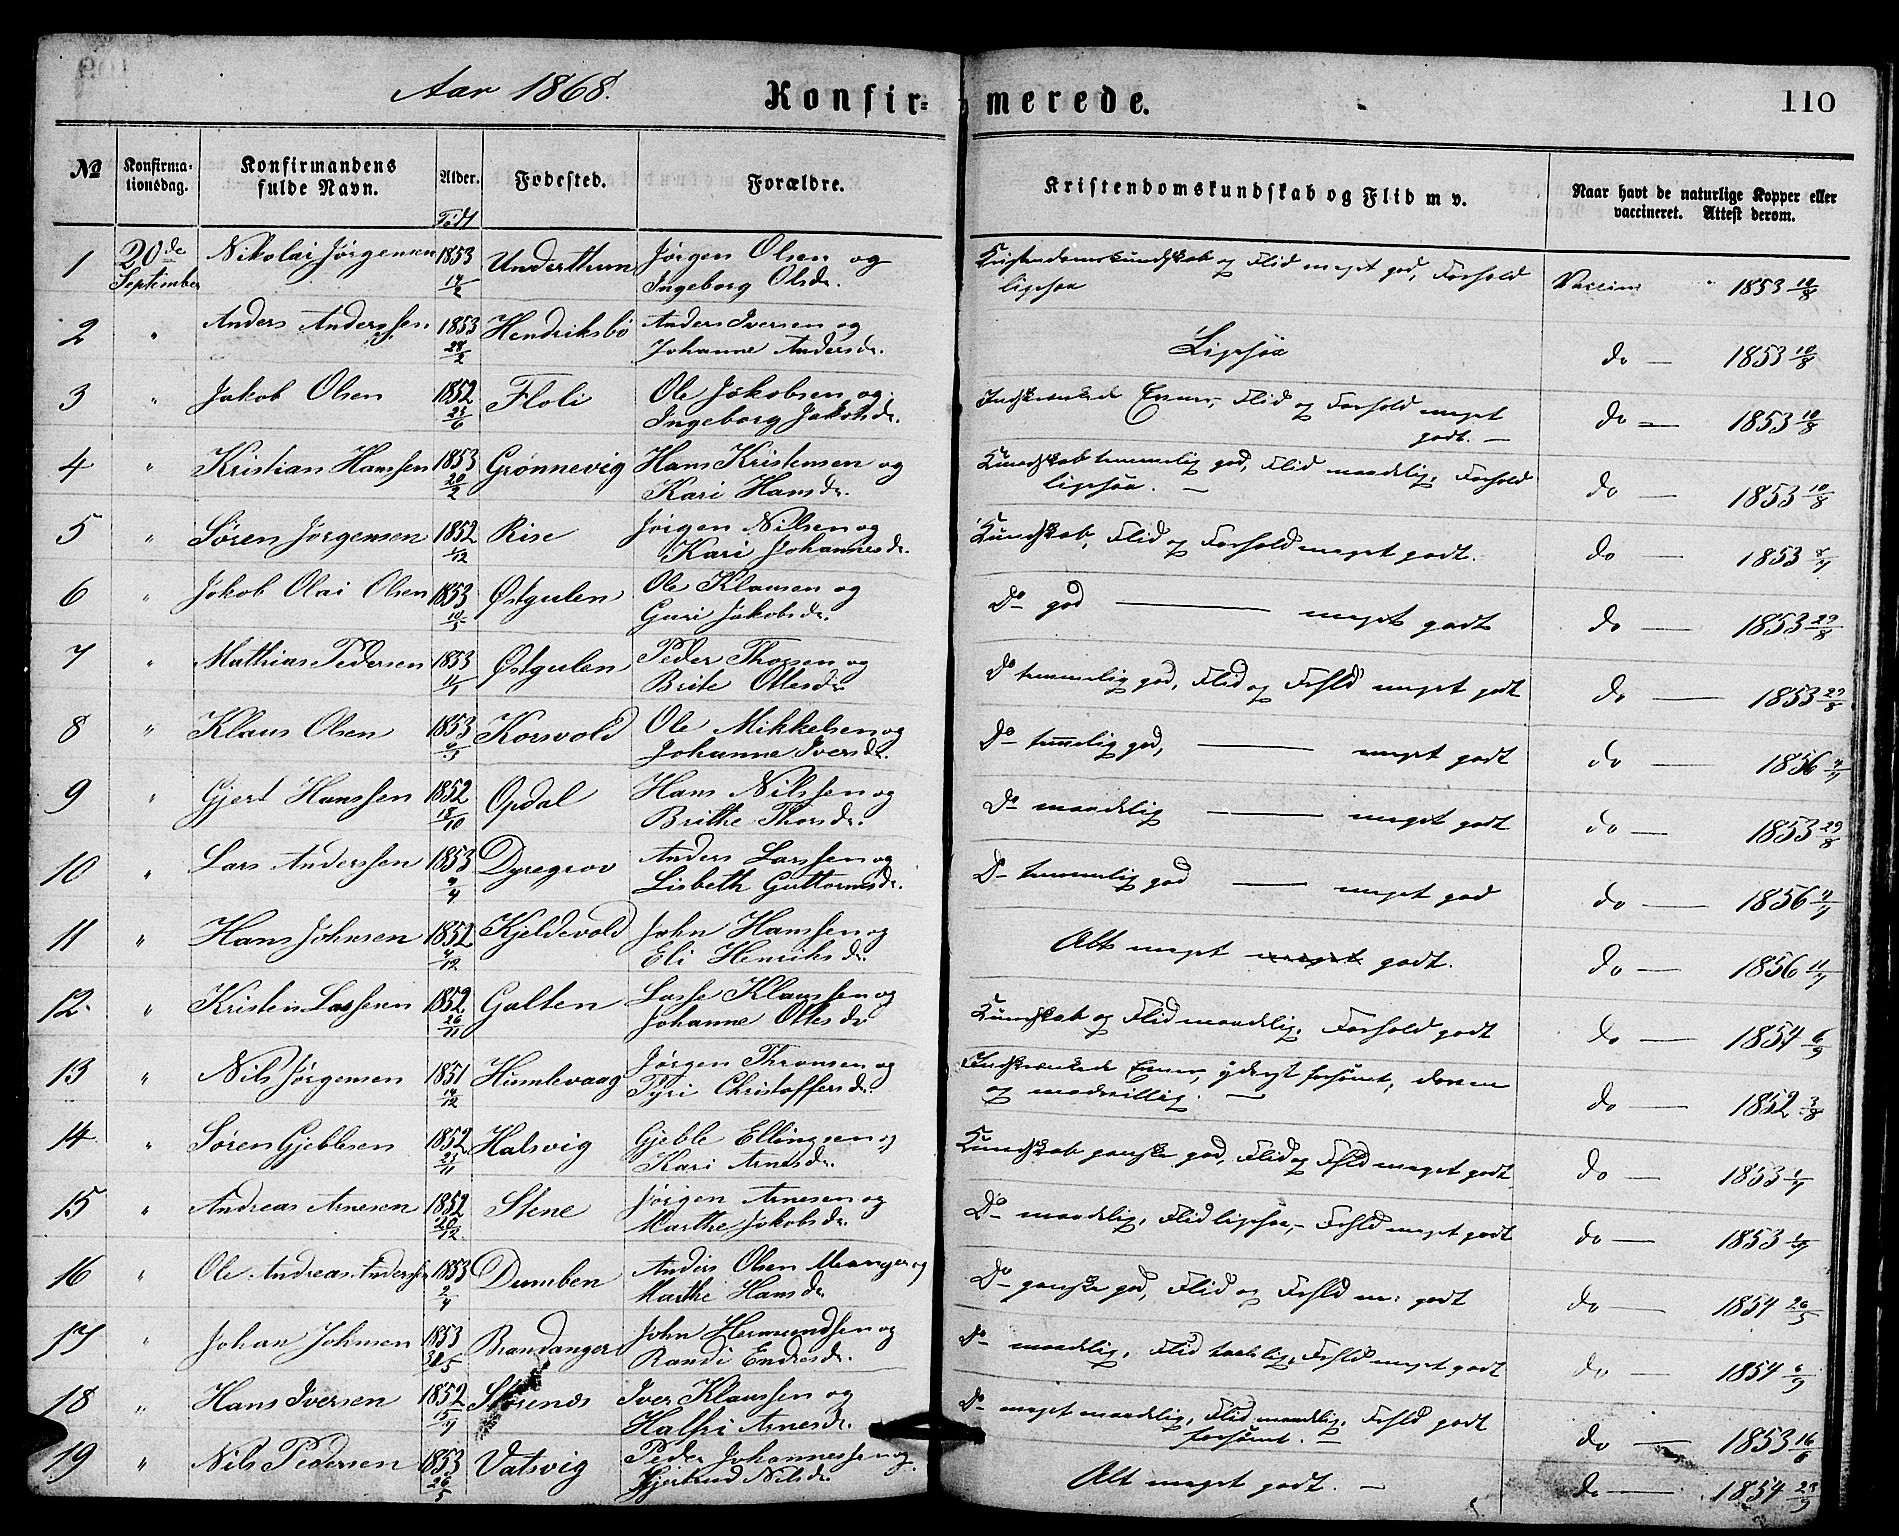 Aar 1868.
Konfir= merede.
110
No
Konfirma-
tionsdag.
Konfirmandens
fulde Navn.
Alder.
Født
Fødested.
Forældre.
Kristendomskundskab og Flid m v.
Naar havt de naturlige Kopper eller
vaccineret. Attest derom.
1 20de Nikolai Jørgensen 1853 Underthun Jørgen Olsen og Kristendomskundskab og Flid meget god, Forhold
September 14/2 Ingeborg Olsdr. ligesaa Vaccine 1853 10/8
2 " Anders Anderssen 1853 Hendriksbö Anders Iversen og
28/2 Johanne Andersdr. Ligesaa do — 1853 10/8
3 " Jakob Olsen 1852 Floli Ole Jakobsen og Indskrænkede Evner, Flid og Forhold meget
25/6 Ingeborg Jakobsdr. godt. — do — 1853 10/8
4 " Kristian Hanssen 1853 Grønnevig Hans Kristensen og Kundskab temmelig god, Flid maadelig, Forhold
20/2 Kari Hansdr. ligesaa. — do — 1853 10/8
5 " Søren Jørgensen 1852 Rise Jørgen Nilsen og Kundskab, Flid og Forhold meget godt.
/12 Kari Johannesdr. do — 1853
6 " Jakob Olai Olsen 1853 Østgulen Ole Klausen og Do god — meget godt
10/5 Guri Jakobsdr. do — 1853 29/8
7 " Mathias Pedersen 1853 Østgulen Peder Thorsen og Do temmelig god, Flid og Forhld meget godt
11/1 Brite Ottesdr. do — 1853 29/8
8 " Klaus Olsen 1853 Korsvold Ole Mikkelsen og Do temmelig god, — meget godt
Johanne Iversdr. do — 1856
9 " Gjert Hanssen 1852 Opdal Hans Nilssen og Do maadelig — meget godt
18/10 Brithe Thorsdr. do — 1853 29/8
10 " Lars Anderssen 1853 Dyregrov Anders Larssen og Do temmelig god — meget god
Lisbeth Guttormsdr. do — 1856
11 " Hans Johnsen 1852 Kjeldevold John Hanssen og Alt meget meget godt.
4/12 Eli Henriksdr. do — 1856
12 " Kristen Lassenn 1852 Galten Lasse Klaussen og Kundskab og Flid maadelig, Forhold godt
26/11 Johanne Ottesdr do — 1854 6/9
13 " Nils Jørgensen 1851 Humlevaag Jørgen Thronsen og Indskrænkede Evner, yderst forsømt, doven
14/12 Tyri Christoffersdr. og modvillig. — do — 1852 3/8
14 " Søren Gjeblesen 1852 Halsvig Gjeble Ellingsen og Kundskab ganske god, Flid og Fhld meget godt
25/11 Kari Arnesdr. do — 1853
15 " Andreas Arnesen 1852 Stene Jørgen Arnesen og Do maadelig, Flid ligesaa, — Forhld meget godt
20/12 Marthe Jakobsdr. do — 1853
16 " Ole Andreas Anderssen 1853 Dumben Anders Olsen Mannger og Do ganske god, Flid og Forhld m: godt
2/4 Marthe Hansdr. do — 1854 26/5
17 " Johan Johnsen 1853 Brandanger John Hermundsen og Do maadelig, Flid taalelig, Forhld meget godt
Randi Endresdr. do — 1854 6/9
18 " Hans Iversen 1852 Storenæs Iver Klaussen og Do meget maadelig, Flid maadelig, Forhld godt
15/9 Halfri Arnesdr. forsømt. — do — 1853 16/8
19 " Nils Pedersen 1853 Vatsvig Peder Johannessen og Alt meget godt. —
26/5 Gjertrud Nilsdr do — 1854 28/9